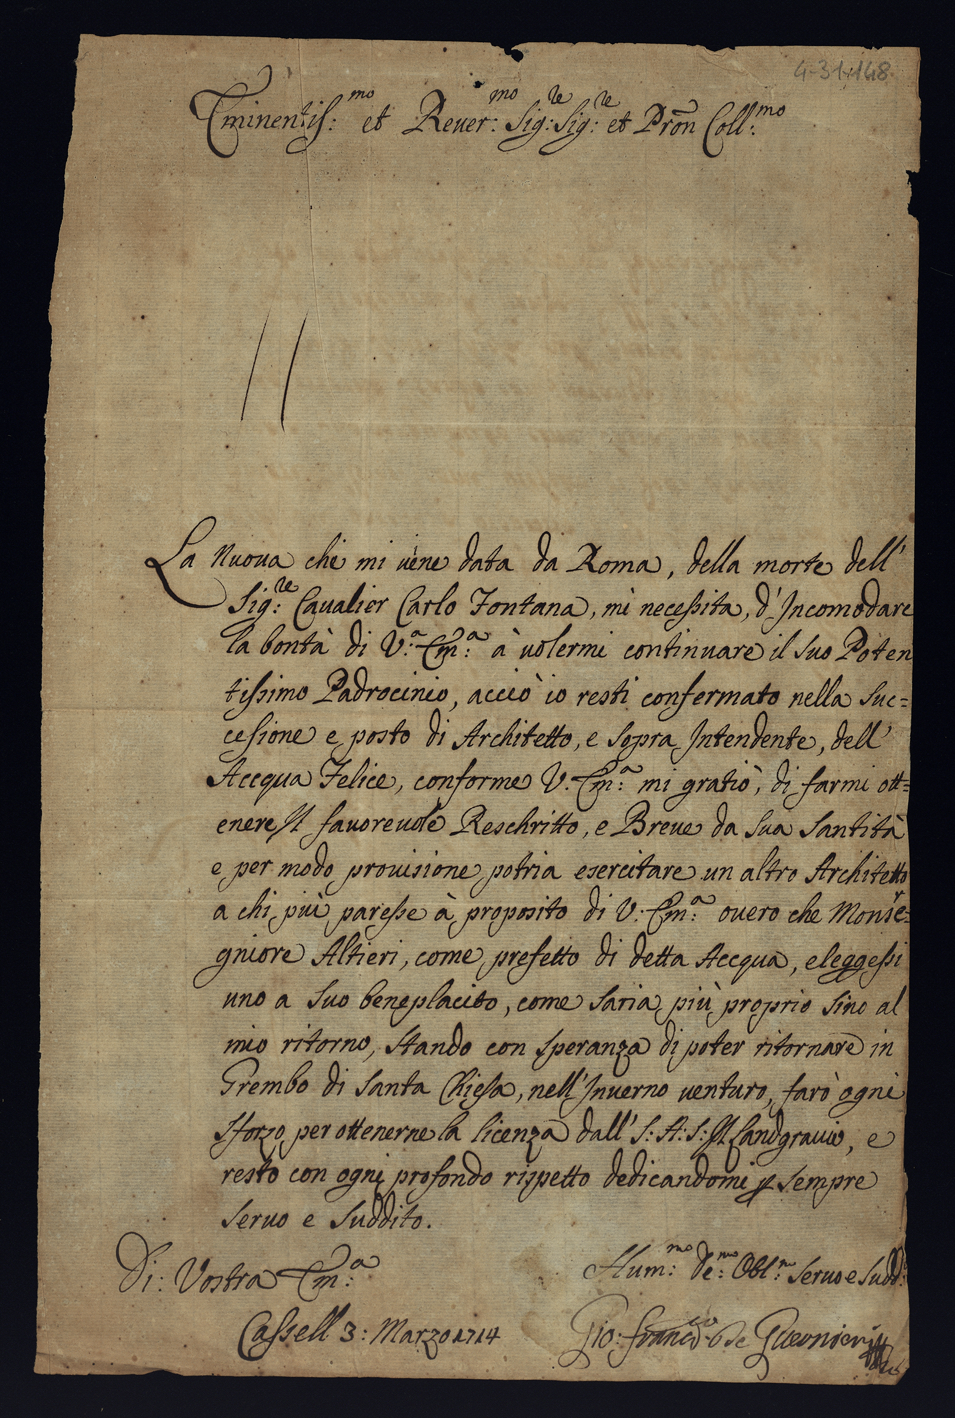 4-31-148.
Eminentiss:mo et Reuer:mo Sig:re Sig:re et Pron Coll:mo
La Nuoua che mi uène data da Roma, della morte dell'
Sig:re Caualier Carlo Fontana, mi necessita, d'Incomodare
la bontà di V:a Em:a à uolermi continuare il suo Poten
tissimo Padrocinio, acciò io resti confermato nella suc=
cesione e posto di Architetto, e sopra Intendente, dell'
Accqua Felice, conforme V: Em:a mi gratiò, di farmi ott=
enere Il fauoreuole Reschritto, e Breue da sua santità
e per modo prouisione potria esercitare un altro Architetto
a chi più paresse à proposito di V: Em:a ouero che Monsie=
gniore Altieri, come prefetto di detta Accqua, eleggessi
uno a suo beneplacito, come saria più proprio sino al
mio ritorno, stando con speranza di poter ritornare in
Grembo di santa Chiesa, nell'Inuerno uenturo, farò ogni
sforzo per ottenerne la licenza dall' S: A: S: Il Landgrauio, e
resto con ogni profondo rispetto dedicandomi p sempre
seruo e suddito.
Di: Vostra Em:a
Hum:mo De:mo Obl:mo seruo e sudd:
Cassell 3: Marzo 1714
Gio: Franc:co de Guernieri